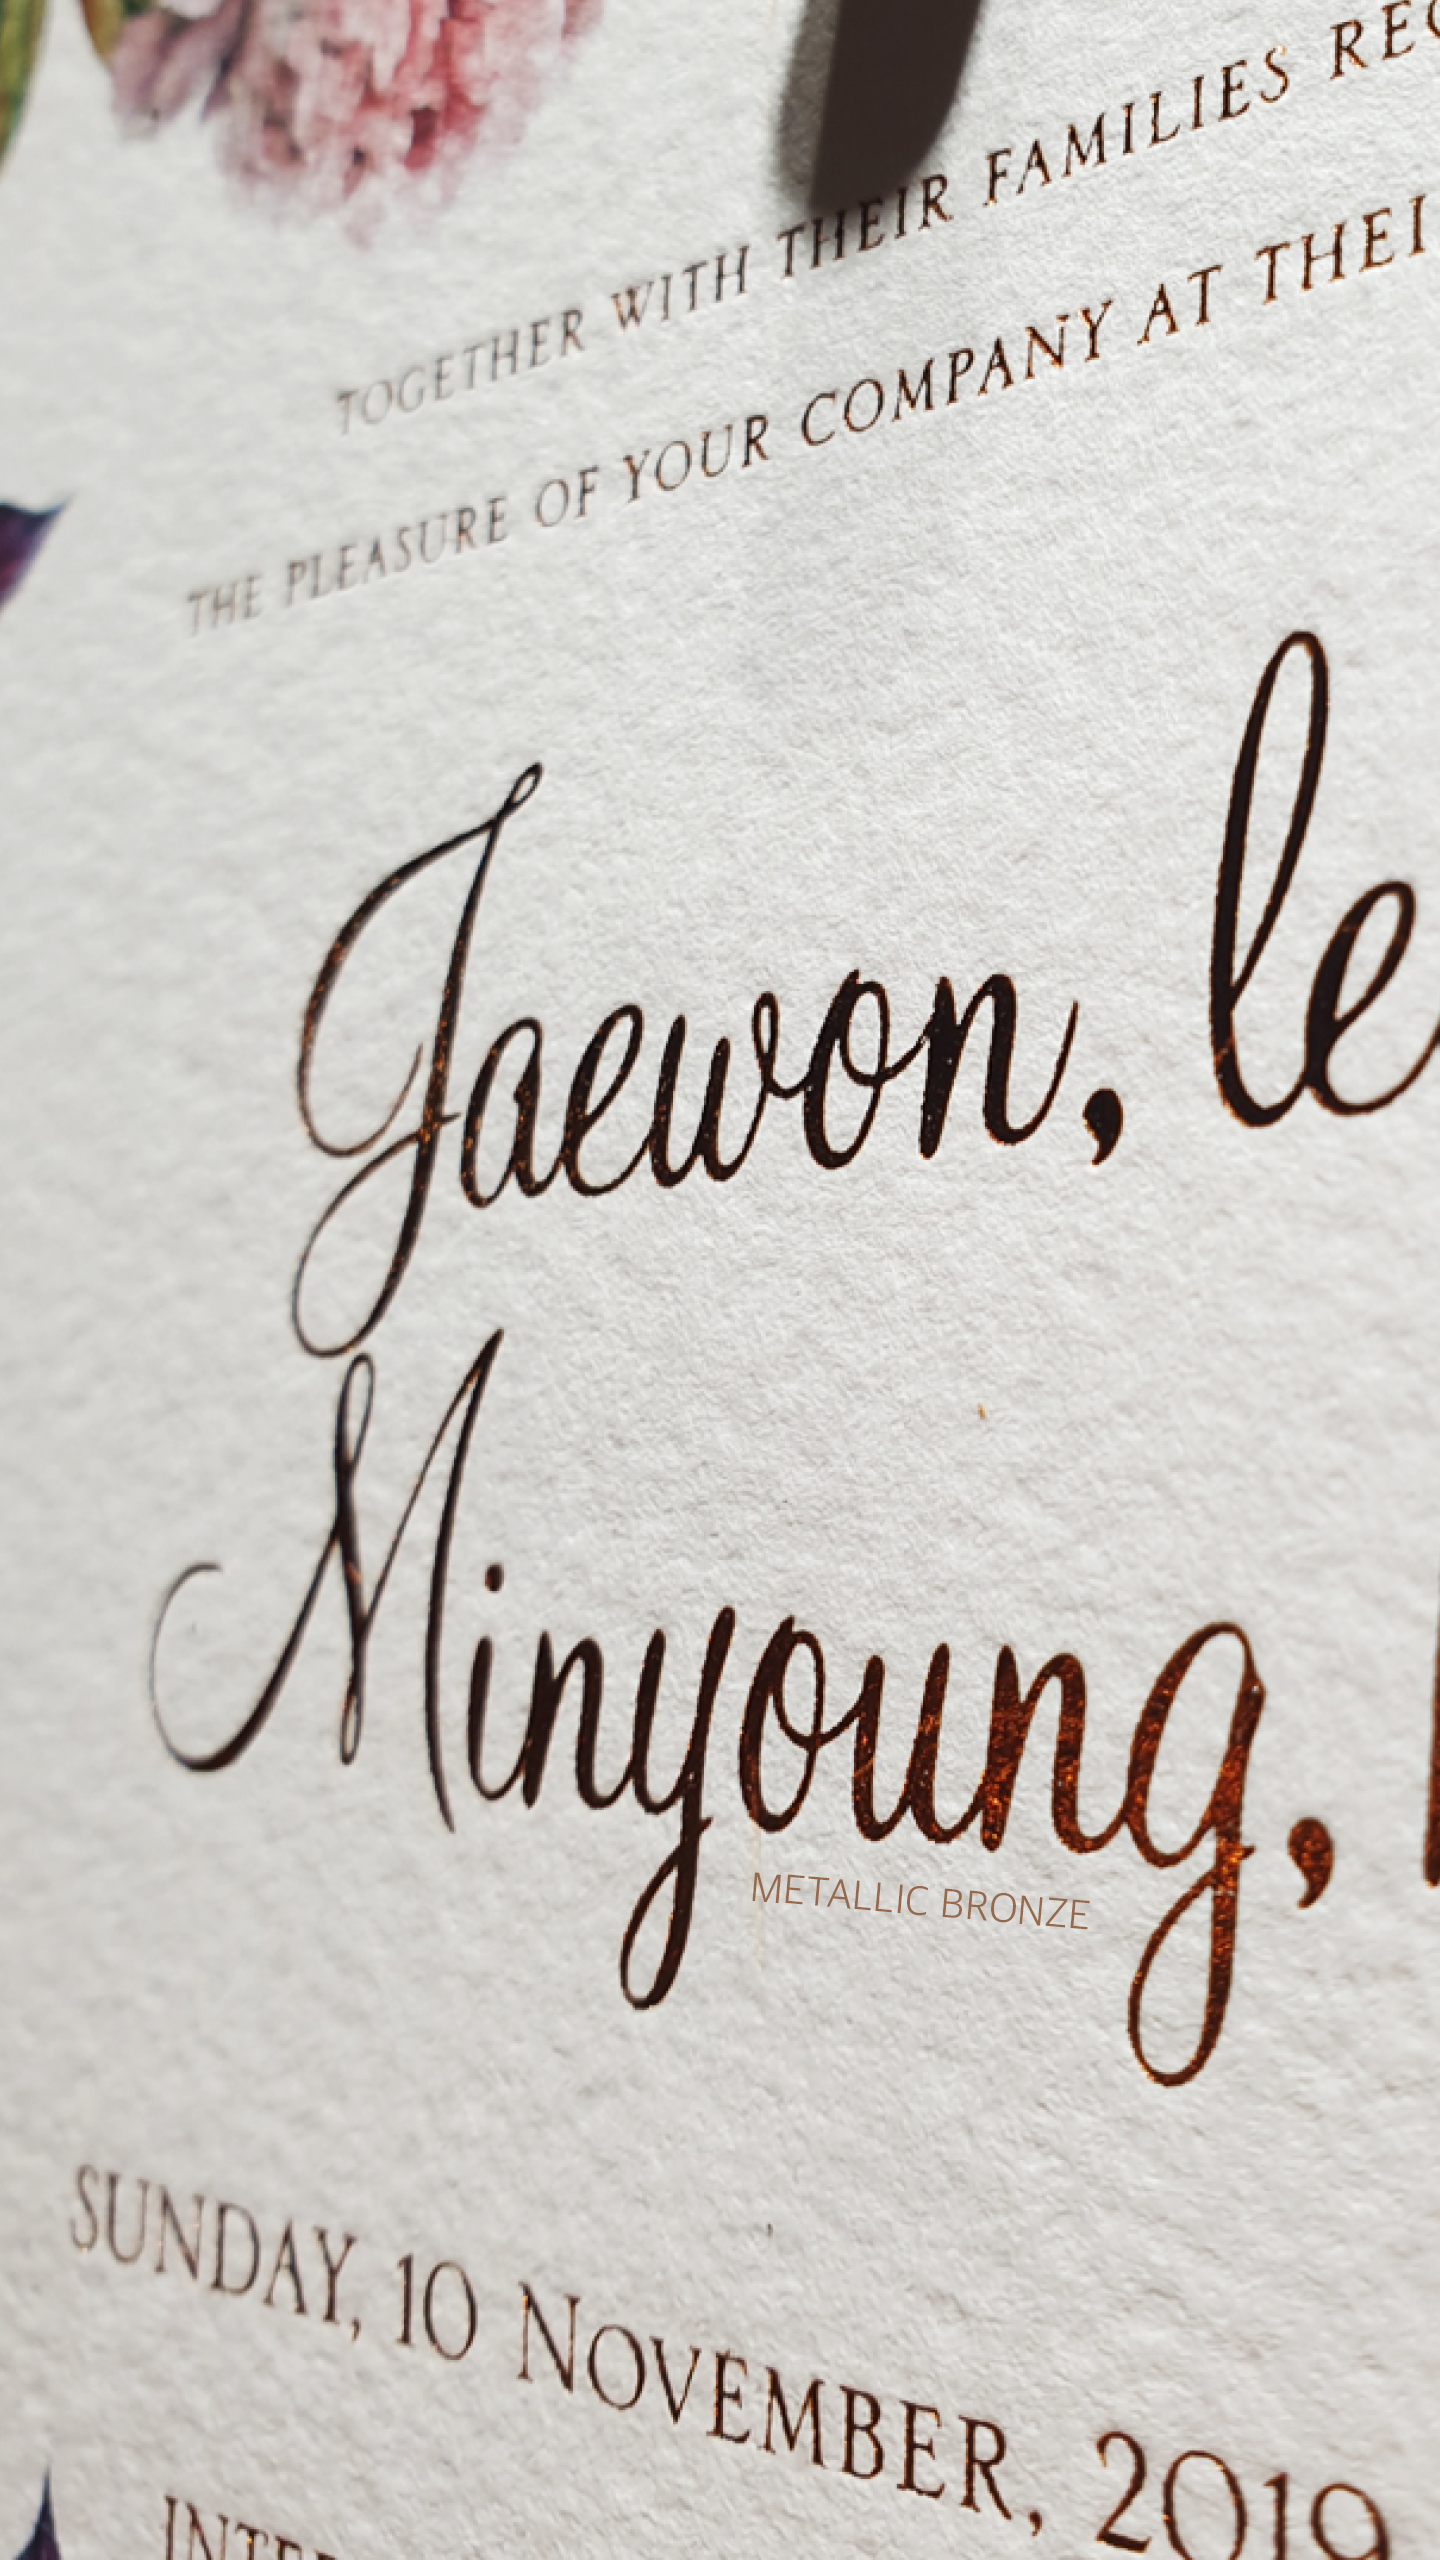 TOGETHER WITH THEIR FAMILIES
THE PLEASURE OF YOUR COMPANY AT
Jaewon, le
Minyoung,
METALLIC BRONZE
SUNDAY, 10 NOVEMBER, 2019